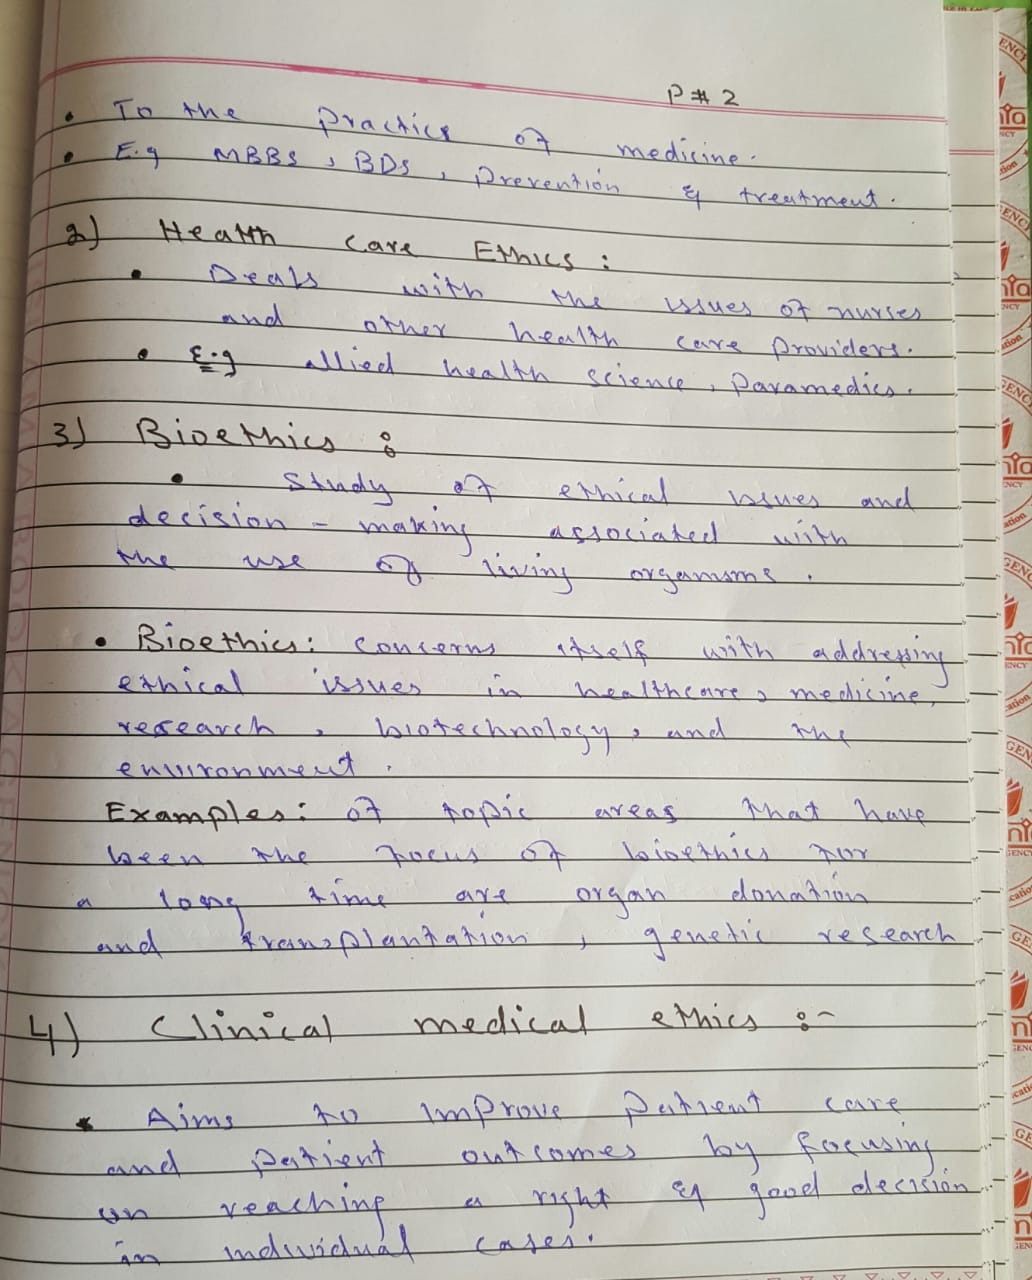 P # 2
• To the practice of medicine.
• E.g MBBS, BDS, prevention & treatment.
2) Health care Ethics:
• Deals with the issues of nurses
and other health care providers.
• E.g allied health science, paramedics.
3) Bioethics:
• Study of ethical issues and
decision-making associated with
the use of living organisms.
• Bioethics: concerns itself with addressing
ethical issues in healthcare, medicine,
research, biotechnology, and the
environment.
Examples: of topic areas that have
been the focus of bioethics for
a long time are organ donation
and transplantation, genetic research
4) Clinical medical ethics:-
* Aims to improve patient care
and patient outcomes by focusing
on reaching a right & good decision
in individual cases.